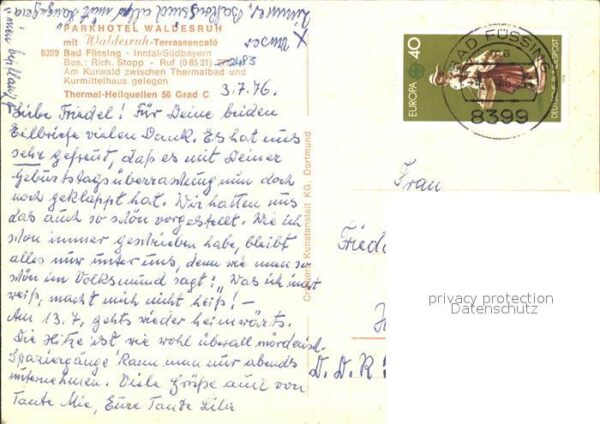 Zimmer, Balkon sind alles mit
X unser
PARKHOTEL WALDESRUH
mit Waldesruh-Terrassencafé
8399 Bad Füssing - Inntal/Südbayern
Bes.: Rich. Stopp - Ruf (0 85 31) 2483
Am Kurwald zwischen Thermalbad und
Kurmittelhaus gelegen
Thermal-Heilquellen 56 Grad C
3.7.76.
Liebe Friedel! Für Deine beiden
Eilbriefe vielen Dank. Es hat uns
sehr gefreut, daß es mit Deiner
Geburtstagsüberraschung nun doch
noch geklappt hat. Wir hatten uns
das auch so schön vorgestellt. Wie ich
schon immer geschrieben habe, bleibt
alles nur unter uns, denn wie man so
schön im Volksmund sagt: „Was ich nicht
weiß, macht mich nicht heiß! –
Am 13.7. gehts wieder heimwärts.
Die Hitze ist wie wohl überall mörderisch.
Spaziergänge kann man nur abends
unternehmen. Viele Grüße auch von
Tante Mie, Eure Tante Lilu
Kunstanstalt KG, Dortmund
EUROPA 40
DEUTSCHE BUNDESPOST
BAD FÜSSING
8399
Frau
Friede
D.D.R.
privacy protection
Datenschutz